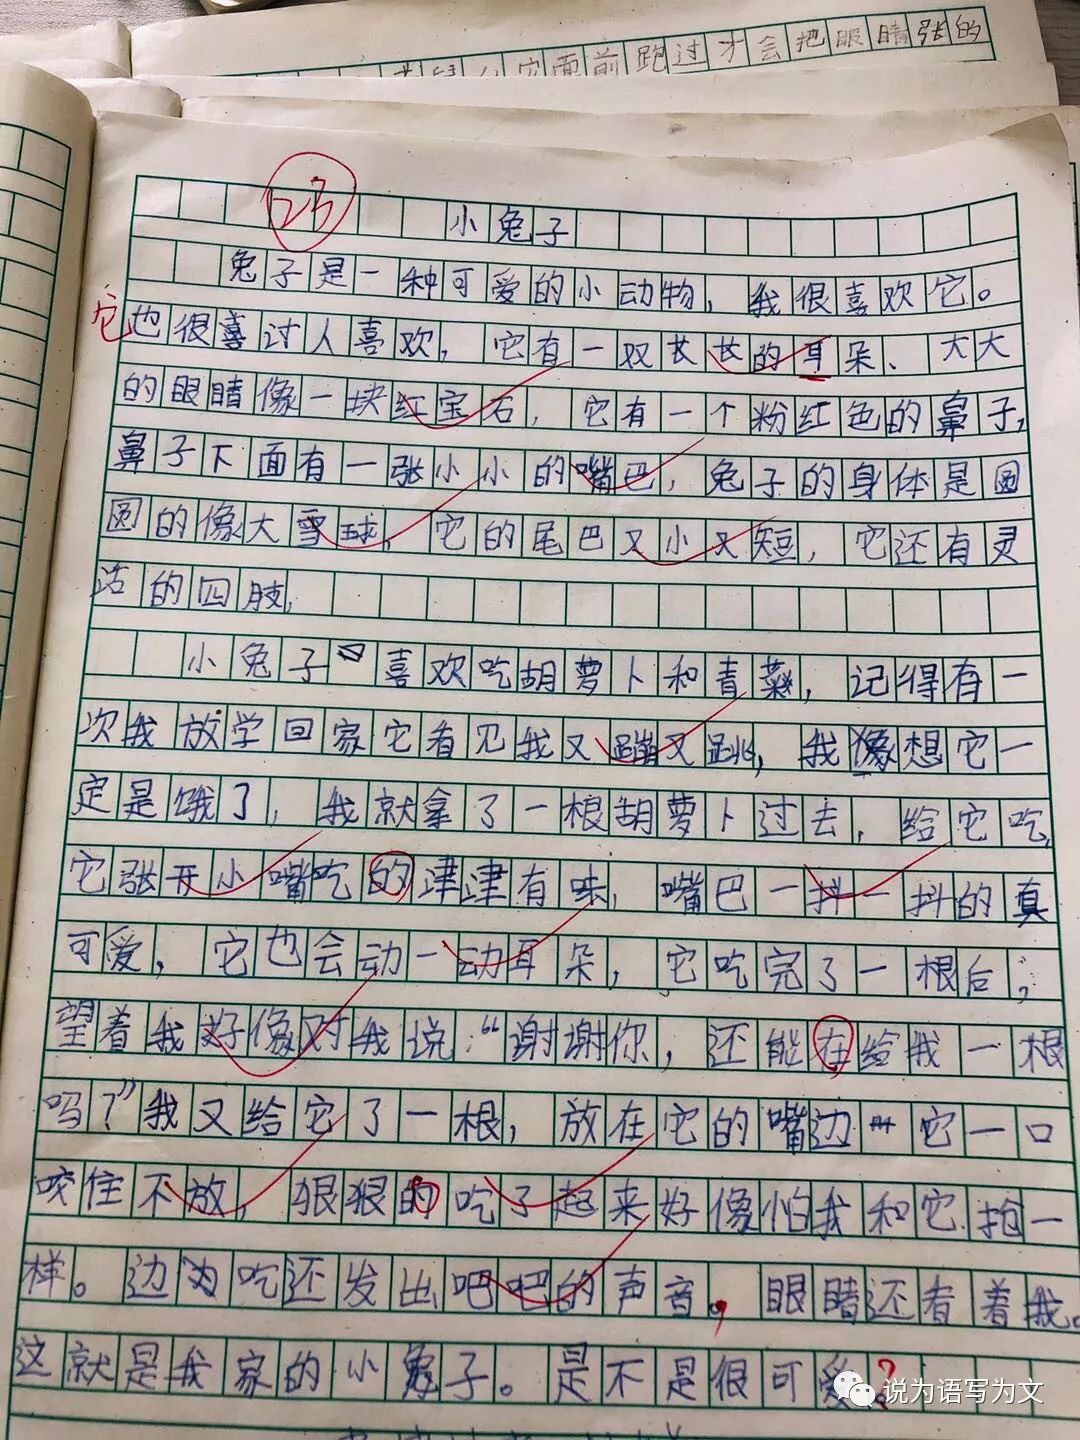 它面前跑过才会把眼睛张的
23
小兔子
兔子是一种可爱的小动物，我很喜欢它。
它
也很喜讨人喜欢，它有一双长长的耳朵、大大
的眼睛像一块红宝石，它有一个粉红色的鼻子，
鼻子下面有一张小小的嘴巴，兔子的身体是圆
圆的像大雪球，它的尾巴又小又短，它还有灵
活的四肢，
小兔子喜欢吃胡萝卜和青菜，记得有一
次我放学回家它看见我又蹦又跳，我像想它一
定是饿了，我就拿了一根胡萝卜过去，给它吃，
它张开小嘴吃的津津有味，嘴巴一抖一抖的真
可爱，它也会动一动耳朵，它吃完了一根后，
望着我好像对我说：“谢谢你，还能在给我一根
吗？”我又给它了一根，放在它的嘴边它一口
咬住不放，狠狠的吃了起来好像怕我和它抢一
样。边吃还发出吧吧的声音。眼睛还看着我。
这就是我家的小兔子。是不是很可爱？
说为语写为文